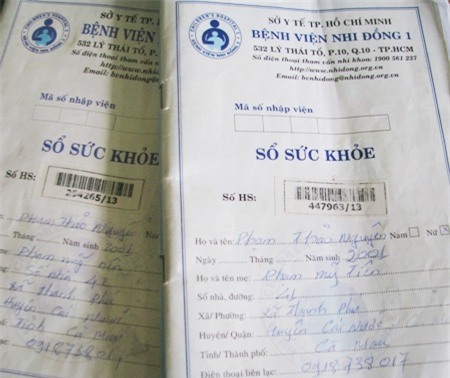 SỞ Y TẾ TP.
BỆNH VIỆN
532 LÝ THÁI TỔ, P.
Số điện thoại tham vấn
http://www.nhi
Email: bcnhi
Mã số nhập viện
SỔ SỨC KHỎE
Số HS:
265/13
Phạm Thảo Nguyên
Tháng Năm sinh 2001
Phạm Mỹ
Số nhà 42
xã Thạnh Phú
Huyện Cái Nước
Tỉnh Cà Mau
SỞ Y TẾ TP. HỒ CHÍ MINH
BỆNH VIỆN NHI ĐỒNG 1
532 LÝ THÁI TỔ, P.10, Q.10 - TP.HCM
Số điện thoại tham vấn nhi khoa: 1900 561 237
http://www.nhidong.org.vn
Email: bcnhidong@nhidong.org.vn
CHILDREN'S HOSPITAL 1
BỆNH VIỆN NHI ĐỒNG 1
Mã số nhập viện
SỔ SỨC KHỎE
Số HS:
447963/13
Họ và tên: Phạm Thảo Nguyên Nam Nữ
Ngày Tháng Năm sinh 2001
Họ và tên mẹ: Phạm Mỹ Tiên
Số nhà, đường: 42
Xã/ Phường: xã Thạnh Phú
Huyện/ Quận: Huyện Cái Nước
Tỉnh/ Thành phố: Cà Mau
Điện thoại liên lạc: 0918738017